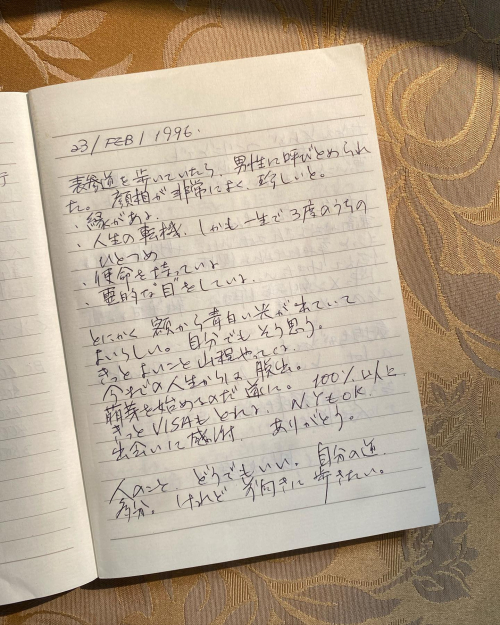 23/FEB/1996.
表参道を歩いていたら、男性に呼びとめられ
た。顔相が非常によく、珍しいと。
・縁がある、
・人生の転機、しかも一生で3度のうちの
ひとつめ
・使命を持っている
・霊的な目をしている、
とにかく 額から青白い光が出ていて
よいらしい。自分でもそう思う。
きっとよいこと山程やってくる
今までの人生からは脱出。
萌芽を始めるのだ 遂に。 100%以上
きっとVISAもとれる、 N.YもOK.
出会いに感謝 ありがとう。
人のこと、どうでもいい。自分の道
多分。けれど 前向きに歩きたい。
行